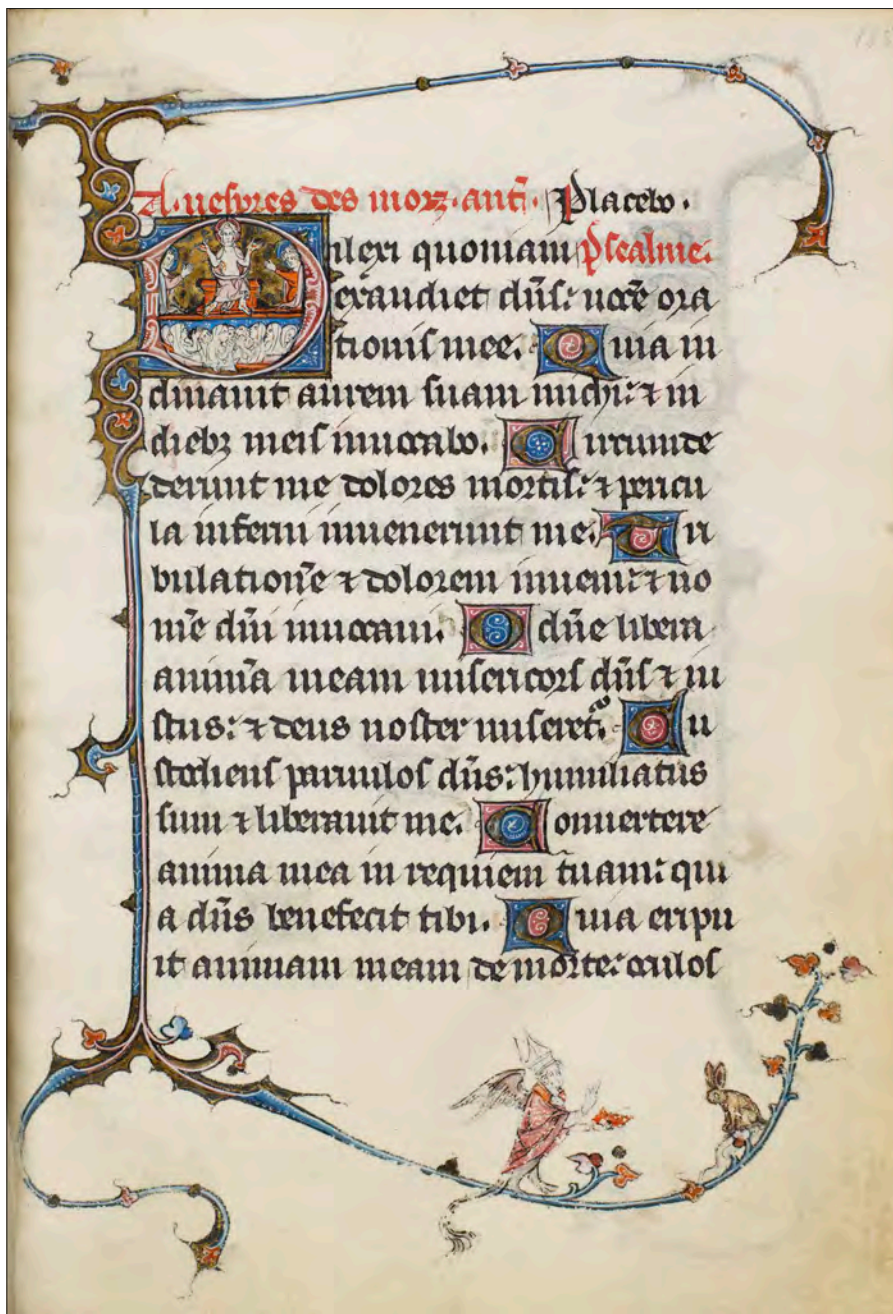 A uespres des morz. ant. Placebo.
Dilexi quoniam Psealme.
exaudiet dñs: uocē ora
tionis mee. Quia in
clinauit aurem suam michi: ⁊ in
dieb; meis inuocabo. Circumde
derunt me dolores mortis: ⁊ pericu
la inferni inuenerunt me. Tri
bulationē ⁊ dolorem inueni: ⁊ no
mē dñi inuocaui. O dñe libera
animā meam misericors dñs ⁊ iu
stus: ⁊ deus noster miseret᷑. Cu
stodiens paruulos dñs: humiliatus
sum ⁊ liberauit me. Conuertere
anima mea in requiem tuam: qui
a dñs benefecit tibi. Quia eripu
it animam meam de morte: oculos